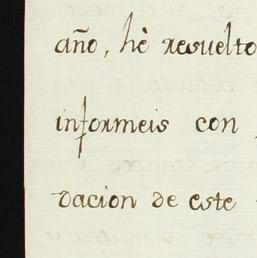 año, hè resuelto
informeis con
dacion de este